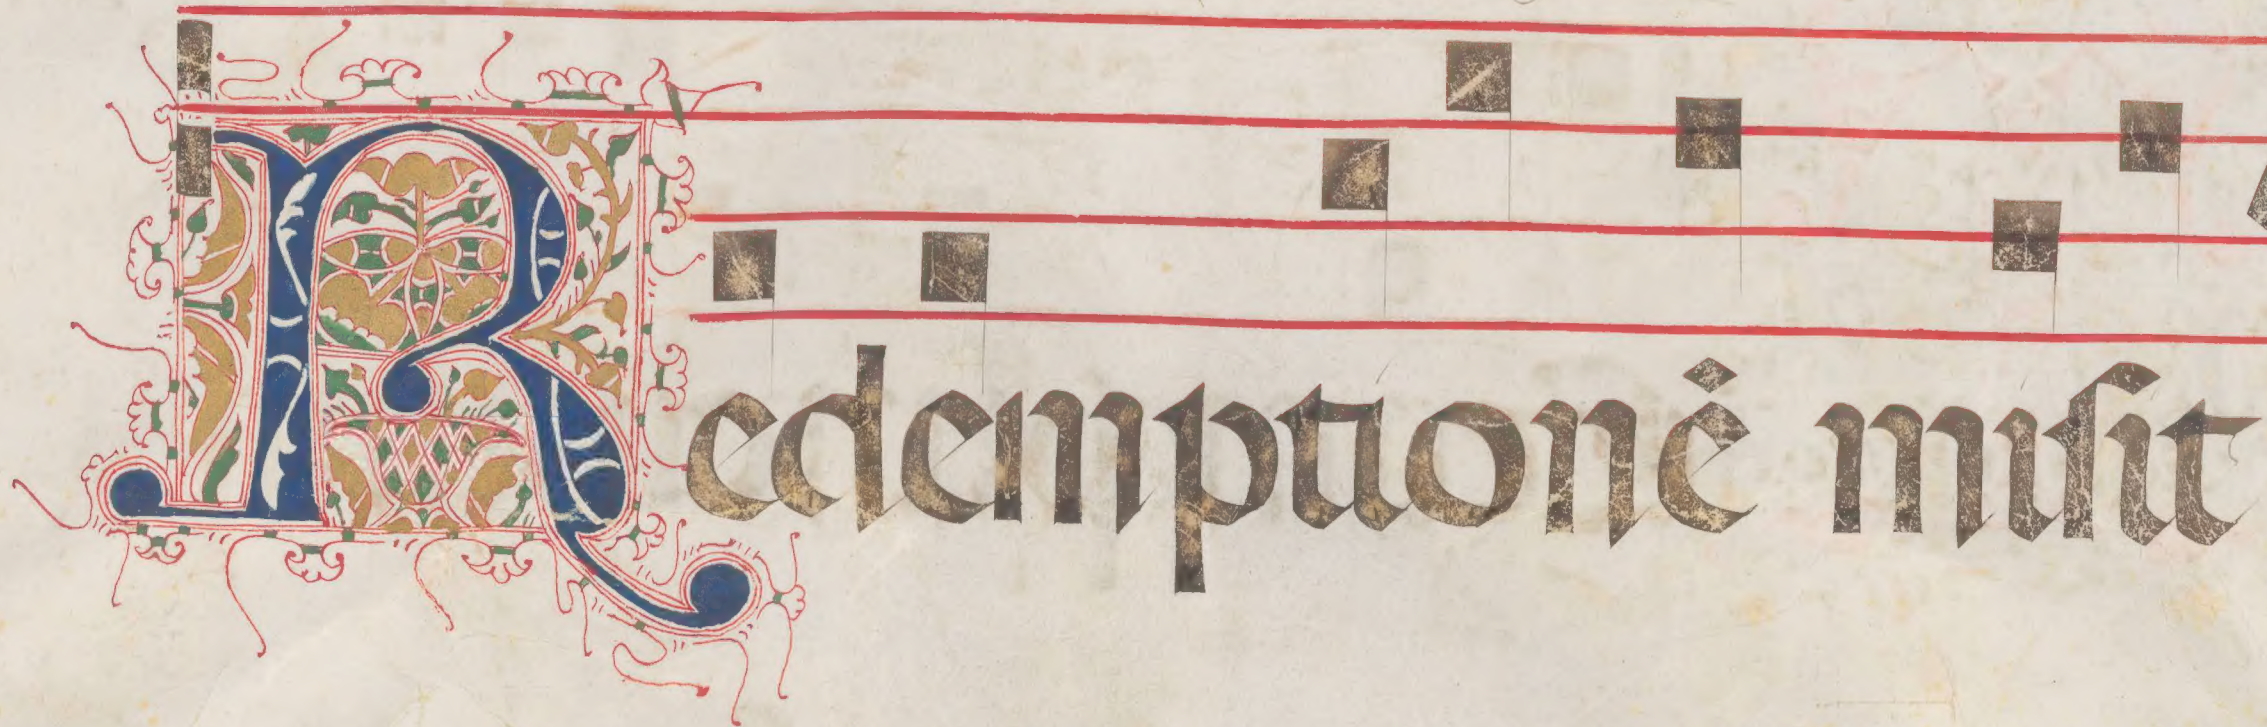 Redemptionē misit